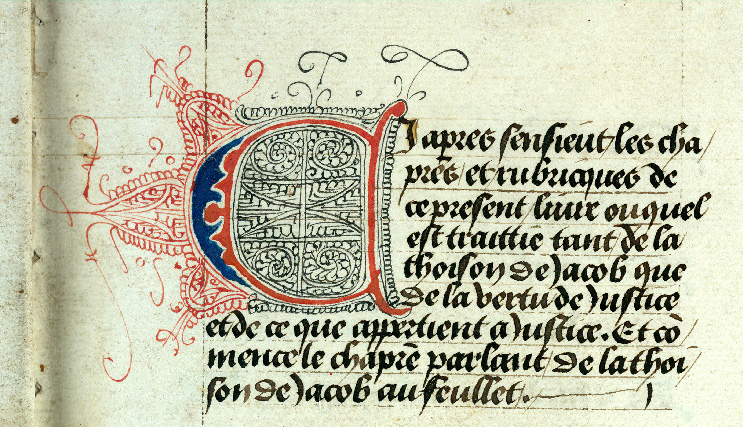 C J apres sensieut les cha/
pres / et rubricques de
ce present liure ouquel
est traittie tant de la
thoison de Jacob que
de la vertu de Justice
et de ce que appertient a Justice. Et cō/
mence le chap̄re parlant de la thoi/
son de Jacob au feullet. j